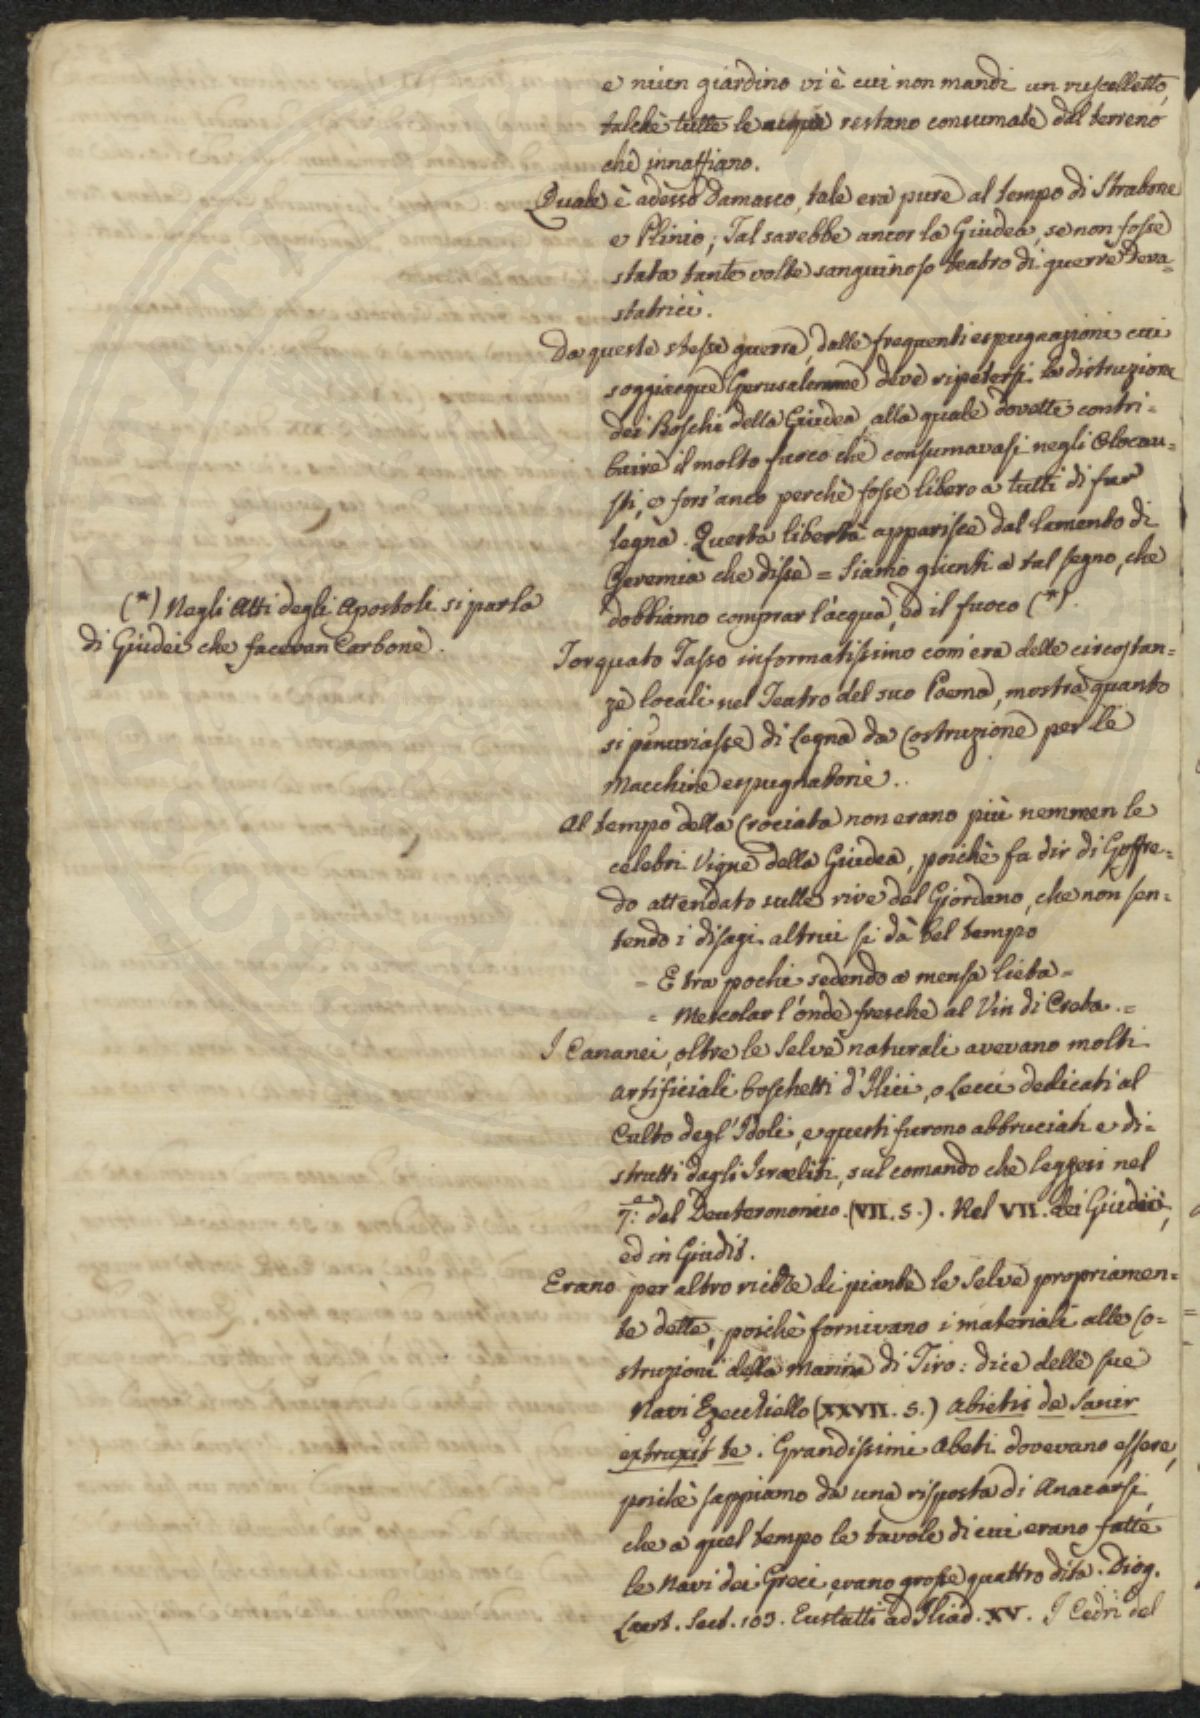 e niun giardino vi è cui non mandi un ruscelletto,
talchè tutte le acque restano consumate dal terreno
che innaffiano.
Quale è adesso Damasco, tale era pure al tempo di Strabone
e Plinio; Tal sarebbe ancor la Giudea, se non fosse
stata tante volte sanguinoso teatro di guerre deva=
statrici.
Da queste stesse guerre, dalle frequenti espugnazioni cui
soggiacque Gerusalemme deve ripetersi la distruzione
dei Boschi della Giudea, alla quale dovette contri=
buire il molto fuoco che consumavasi negli Olocau=
sti, e fors'anco perchè fosse libero a tutti di far
legna. Questa libertà apparisce dal lamento di
Geremia che disse = Siamo giunti a tal segno, che
dobbiamo comprar l'acqua, ed il fuoco (*).
(*) Negli Atti degli Apostoli si parla
di Giudei che facevan Carbone.
Torquato Tasso informatissimo com'era delle circostan=
ze locali nel Teatro del suo Poema, mostra quanto
si penuriasse di Legna da Costruzione per le
Macchine espugnatorie.
Al tempo della Crociata non erano più nemmen le
celebri Vigne della Giudea, poichè fa dir di Goffre=
do attendato sulle rive del Giordano, che non sen=
tendo i disagi altrui si dà bel tempo
= E tra pochi sedendo a mensa lieta =
= Mescolar l'onde fresche al Vin di Creta. =
I Cananei, oltre le Selve naturali avevano molti
artificiali boschetti d'Ilici, o Lecci dedicati al
Culto degl'Idoli, e questi furono abbruciati e di=
strutti dagli Israeliti, sul comando che leggesi nel
7.º del Deuteronomio. (VII. 5.). Nel VII. dei Giudici,
ed in Giudit.
Erano per altro ricche di piante le Selve propriamen=
te dette, poichè fornivano i materiali alle Co=
struzioni della marina di Tiro: dice delle sue
Navi Ezecchiello (XXVII. 5.) Abietis de Sanir
extruxit te. Grandissimi Abeti dovevano essere,
poichè sappiamo da una risposta di Anacarsi,
che a quel tempo le tavole di cui erano fatte
le Navi dei Greci, erano grosse quattro dita. Diog.
Laert. Sect. 103. Eustatti ad Iliad. XV. I Cedri del